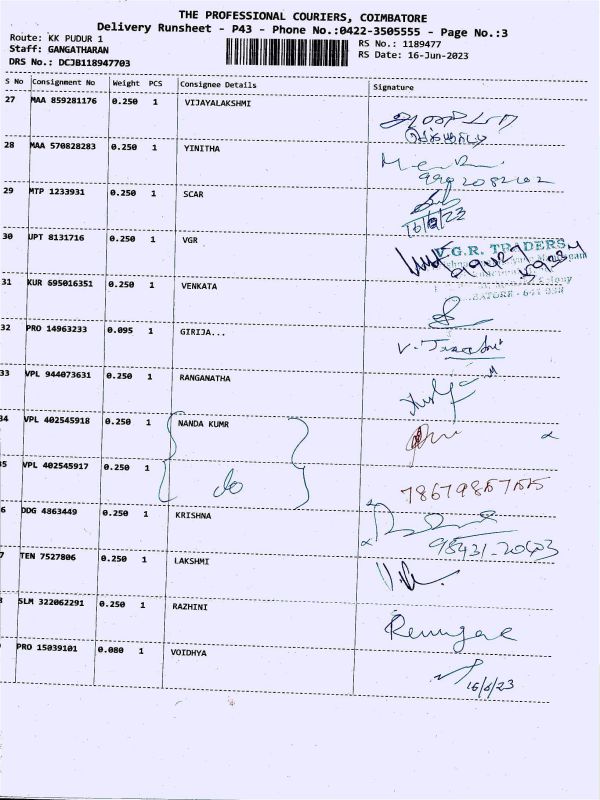 THE PROFESSIONAL COURIERS, COIMBATORE
Delivery Runsheet - P43 - Phone No.:0422-3505555 - Page No.:3
Route: KK PUDUR 1
Staff: GANGATHARAN
DRS No.: DCJB118947703
RS No.: 1189477
RS Date: 16-Jun-2023
S No Consignment No Weight PCS Consignee Details Signature
27 MAA 859281176 0.250 1 VIJAYALAKSHMI
28 MAA 570828283 0.250 1 YINITHA
29 MTP 1233931 0.250 1 SCAR
16/6/23
30 UPT 8131716 0.250 1 VGR
V.G.R. TRADERS
31 KUR 695016351 0.250 1 VENKATA
32 PRO 14963233 0.095 1 GIRIJA...
33 VPL 944073631 0.250 1 RANGANATHA
34 VPL 402545918 0.250 1 NANDA KUMR
35 VPL 402545917 0.250 1 do
6 DDG 4863449 0.250 1 KRISHNA
98431-20403
7 TEN 7527806 0.250 1 LAKSHMI
8 SLM 322062291 0.250 1 RAZHINI
PRO 15039101 0.080 1 VOIDHYA
16/6/23